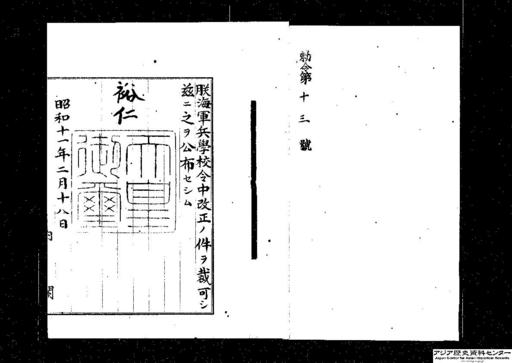 勅令第十三號
朕海軍兵學校令中改正ノ件ヲ裁可シ
茲ニ之ヲ公布セシム
裕仁
天皇
御璽
昭和十一年二月十八日
内閣
アジア歴史資料センター
Japan Center for Asian Historical Records